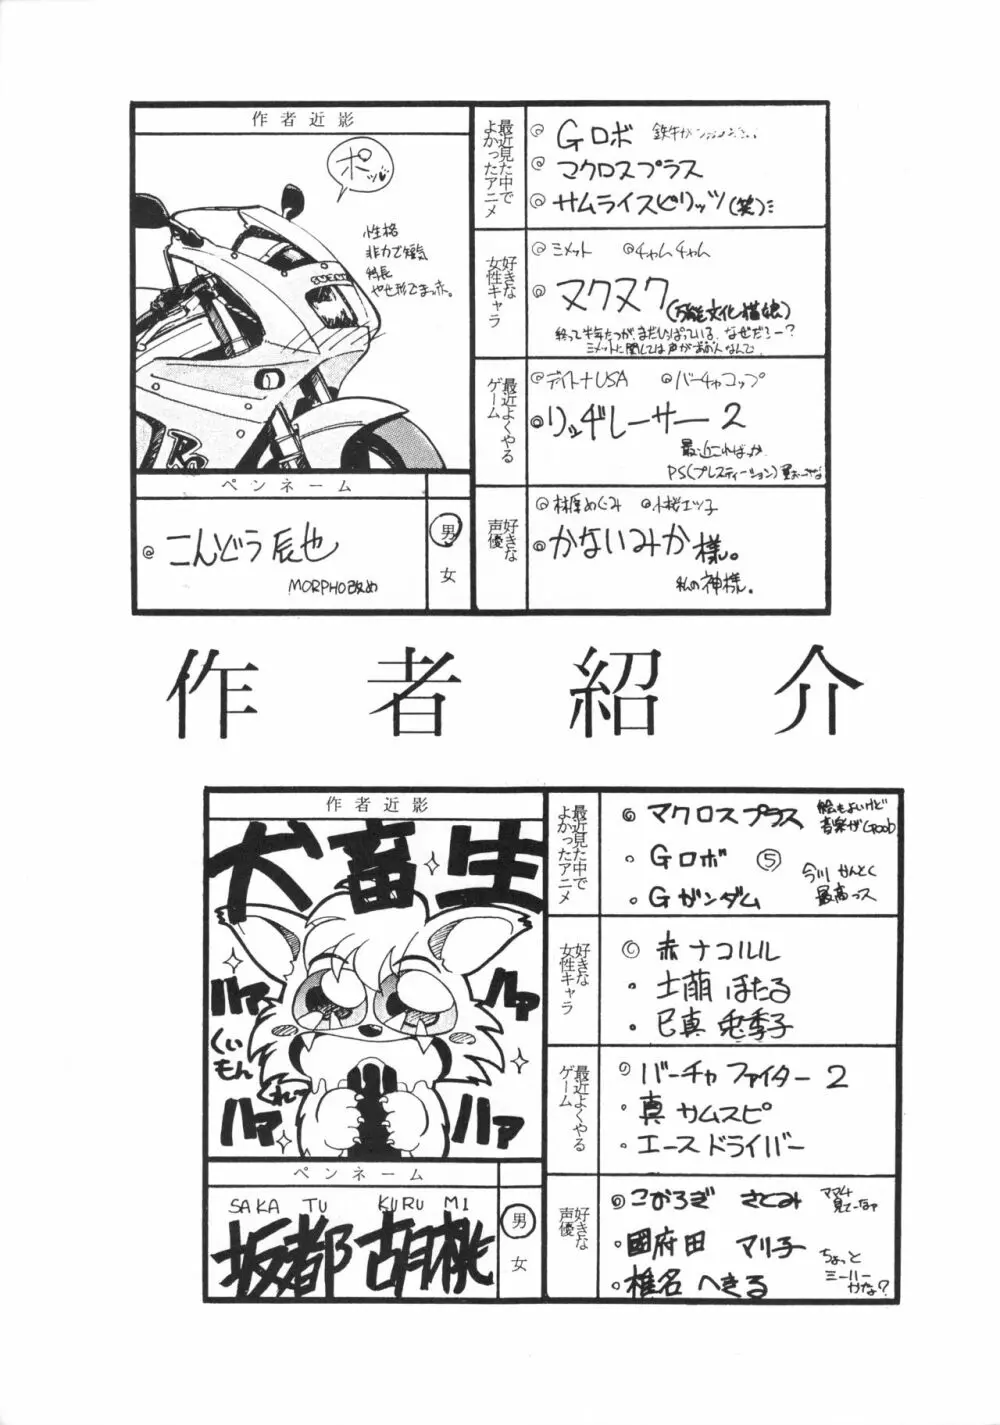 作者近影
ポッ♥
性格
非力で短気
体長
やせ形でまっ赤。
ペンネーム
こんどう辰也
MORPHO改め
男
女
最近見た中で
よかったアニメ
◎Gロボ
◎マクロスプラス
◎サムライスピリッツ(笑)
好きな
女性キャラ
◎ミメット ◎チャムチャム
◎ヌクヌク(万能文化猫娘)
終って半年たつが、まだいっぱっている。なぜだろー?
ミメットに関しては声があの人なんで
最近よくやる
ゲーム
◎デイトナUSA ◎バーチャコップ
◎リッヂレーサー2
最近こればっか
PS(プレステイーション)
好きな
声優
◎林原めぐみ ◎小桜エツ子
◎かないみか様。
私の神様。
作者紹介
作者近影
犬畜生
ハァ
ハァ
くいもんくれー
ハァ
ハァ
ペンネーム
SAKA TU KURU MI
坂都胡桃
男
女
最近見た中で
よかったアニメ
◎マクロスプラス 絵もよいけど
音楽がGood
・Gロボ⑤
・Gガンダム 今川かんとく
最高っス
好きな
女性キャラ
◎赤ナコルル
・土萌ほたる
・巳真兎季子
最近よくやる
ゲーム
◎バーチャファイター2
・真サムスピ
・エースドライバー
好きな
声優
◎こおろぎさとみ ママは4
見てーなァ
・國府田マリ子
・椎名へきる ちょっと
ミーハー
かな?